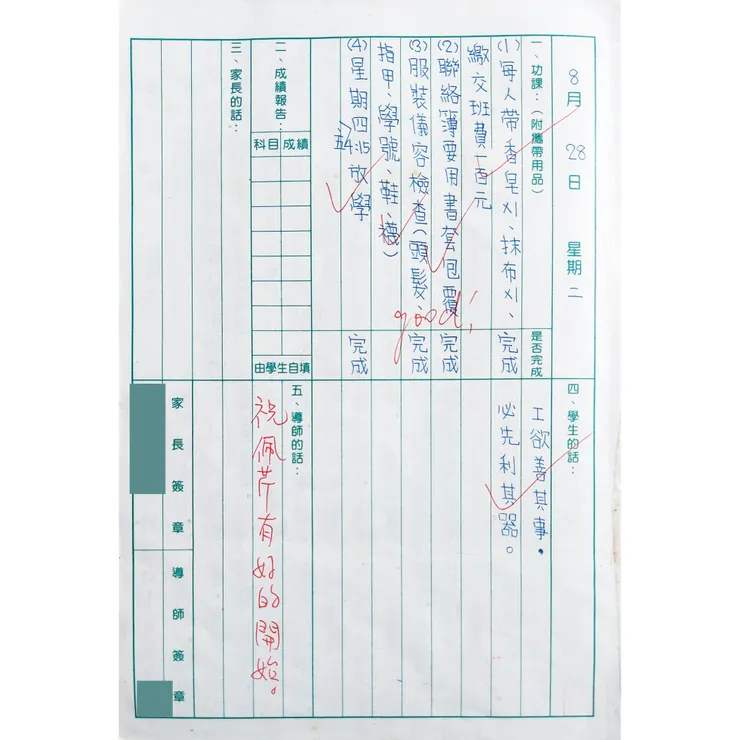 8月28日 星期二
一、功課：（附攜帶用品）
是否完成
(1)每人帶香皂×1、抹布×1、
完成
繳交班費一百元
(2)聯絡簿要用書套包覆
完成
(3)服裝儀容檢查(頭髮、
完成
指甲、學號、鞋、襪)
(4)星期四4:15放學
五
完成
good!
二、成績報告：
科目 成績
由學生自填
三、家長的話：
四、學生的話：
工欲善其事，
必先利其器。
五、導師的話：
祝佩芹有好的開始。
家長簽章
導師簽章